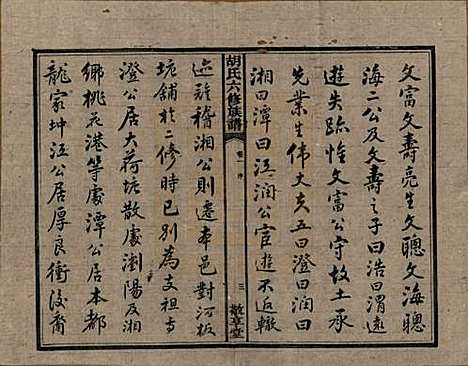 文富文壽亮生文聰文海聰
海二公及文壽之子曰浩曰渭遠
遊失臨惟文富公守故土承
先業生偉丈夫五曰澄曰潤曰
湘曰潭曰江潤公官遊不返轍
胡氏六修族譜
卷一 序
三
敬享堂
迹難稽湘公則遷本邑對河板
塘舖於二修時已別為支祖等
澄公居大荷塘散處瀏陽及湘
鄉桃花港等處潭公居本都
龍家坤江公居厚良衝後裔